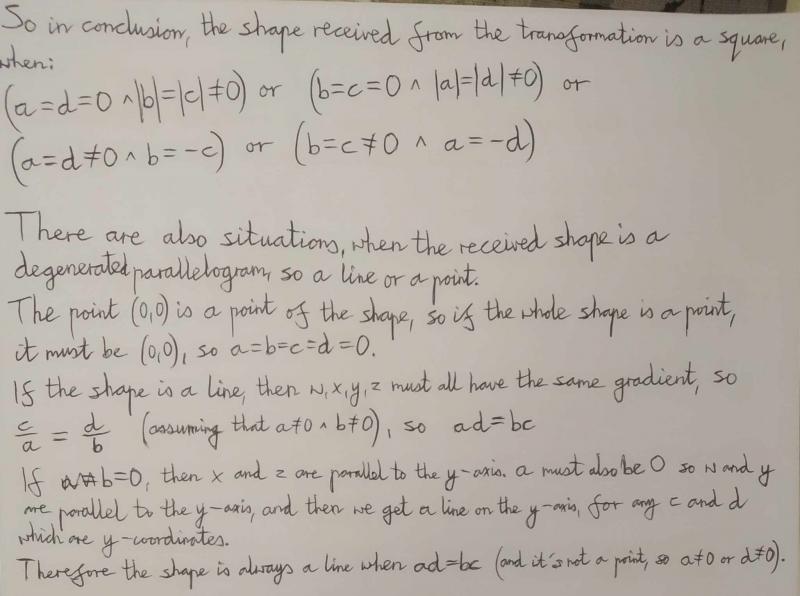 So in conclusion, the shape received from the transformation is a square,
when:
(a=d=0 ∧ |b|=|c|≠0) or (b=c=0 ∧ |a|=|d|≠0) or
(a=d≠0 ∧ b=-c) or (b=c≠0 ∧ a=-d)
There are also situations, when the received shape is a
degenerated parallelogram, so a line or a point.
The point (0,0) is a point of the shape, so if the whole shape is a point,
it must be (0,0), so a=b=c=d=0.
If the shape is a line, then w, x, y, z must all have the same gradient, so
c/a = d/b (assuming that a≠0 ∧ b≠0), so ad=bc
If b=0, then x and z are parallel to the y-axis. a must also be 0 so w and y
are parallel to the y-axis, and then we get a line on the y-axis, for any c and d
which are y-coordinates.
Therefore the shape is always a line when ad=bc (and it's not a point, so a≠0 or d≠0).